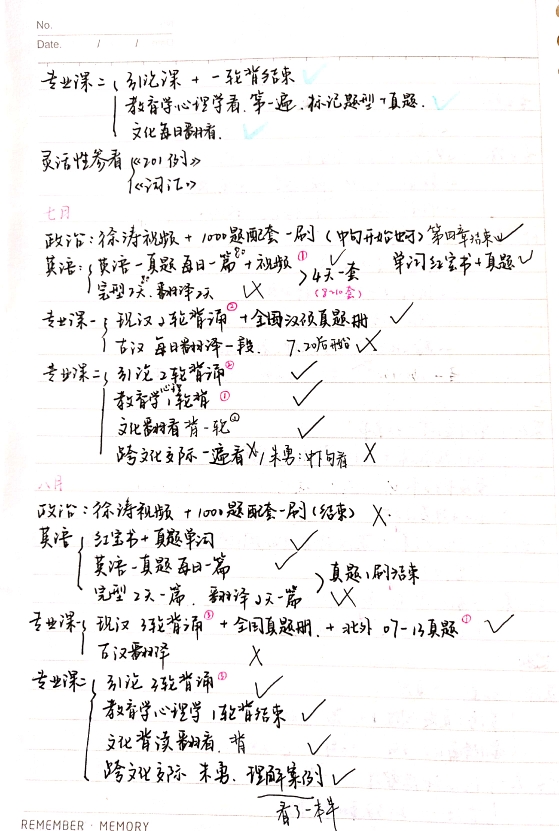 No.
Date. / /
专业课二 引论课 + 一轮背结束 ✓
教育学心理学看第一遍.标记题型+真题. ✓
文化每日翻看. ✓
灵活性参看《201例》
《词汇》
七月
政治:徐涛视频 + 1000题配套一刷(中旬开始也可)第四章结束 ✓
英语: 英语一真题每日一篇 + 视频① ✓ 单词红宝书+真题 ✓
完型2天.翻译2天 4天一套
(8~10套)
专业课一 现汉2轮背诵② + 全国汉硕真题册 ✓
古汉 每日翻译一段. 7.20后开始
专业课二 引论2轮背诵② ✓
教育学心理1轮背① ✓
文化翻看背一轮① ✓
跨文化交际一遍看 X / 朱勇:中旬看 X
八月
政治:徐涛视频 + 1000题配套一刷(结束) X
英语 红宝书+真题单词 ✓
英语一真题每日一篇 ✓ 真题1刷结束
完型2天一篇.翻译2天一篇
专业课一 现汉3轮背诵③ + 全国真题册. + 北外07-13真题① ✓
古汉翻译 X
专业课二 引论3轮背诵③ ✓
教育学心理学1轮背结束 ✓
文化背读翻看.背 ✓
跨文化交际 朱勇.理解案例 ✓
看了一本半
REMEMBER · MEMORY